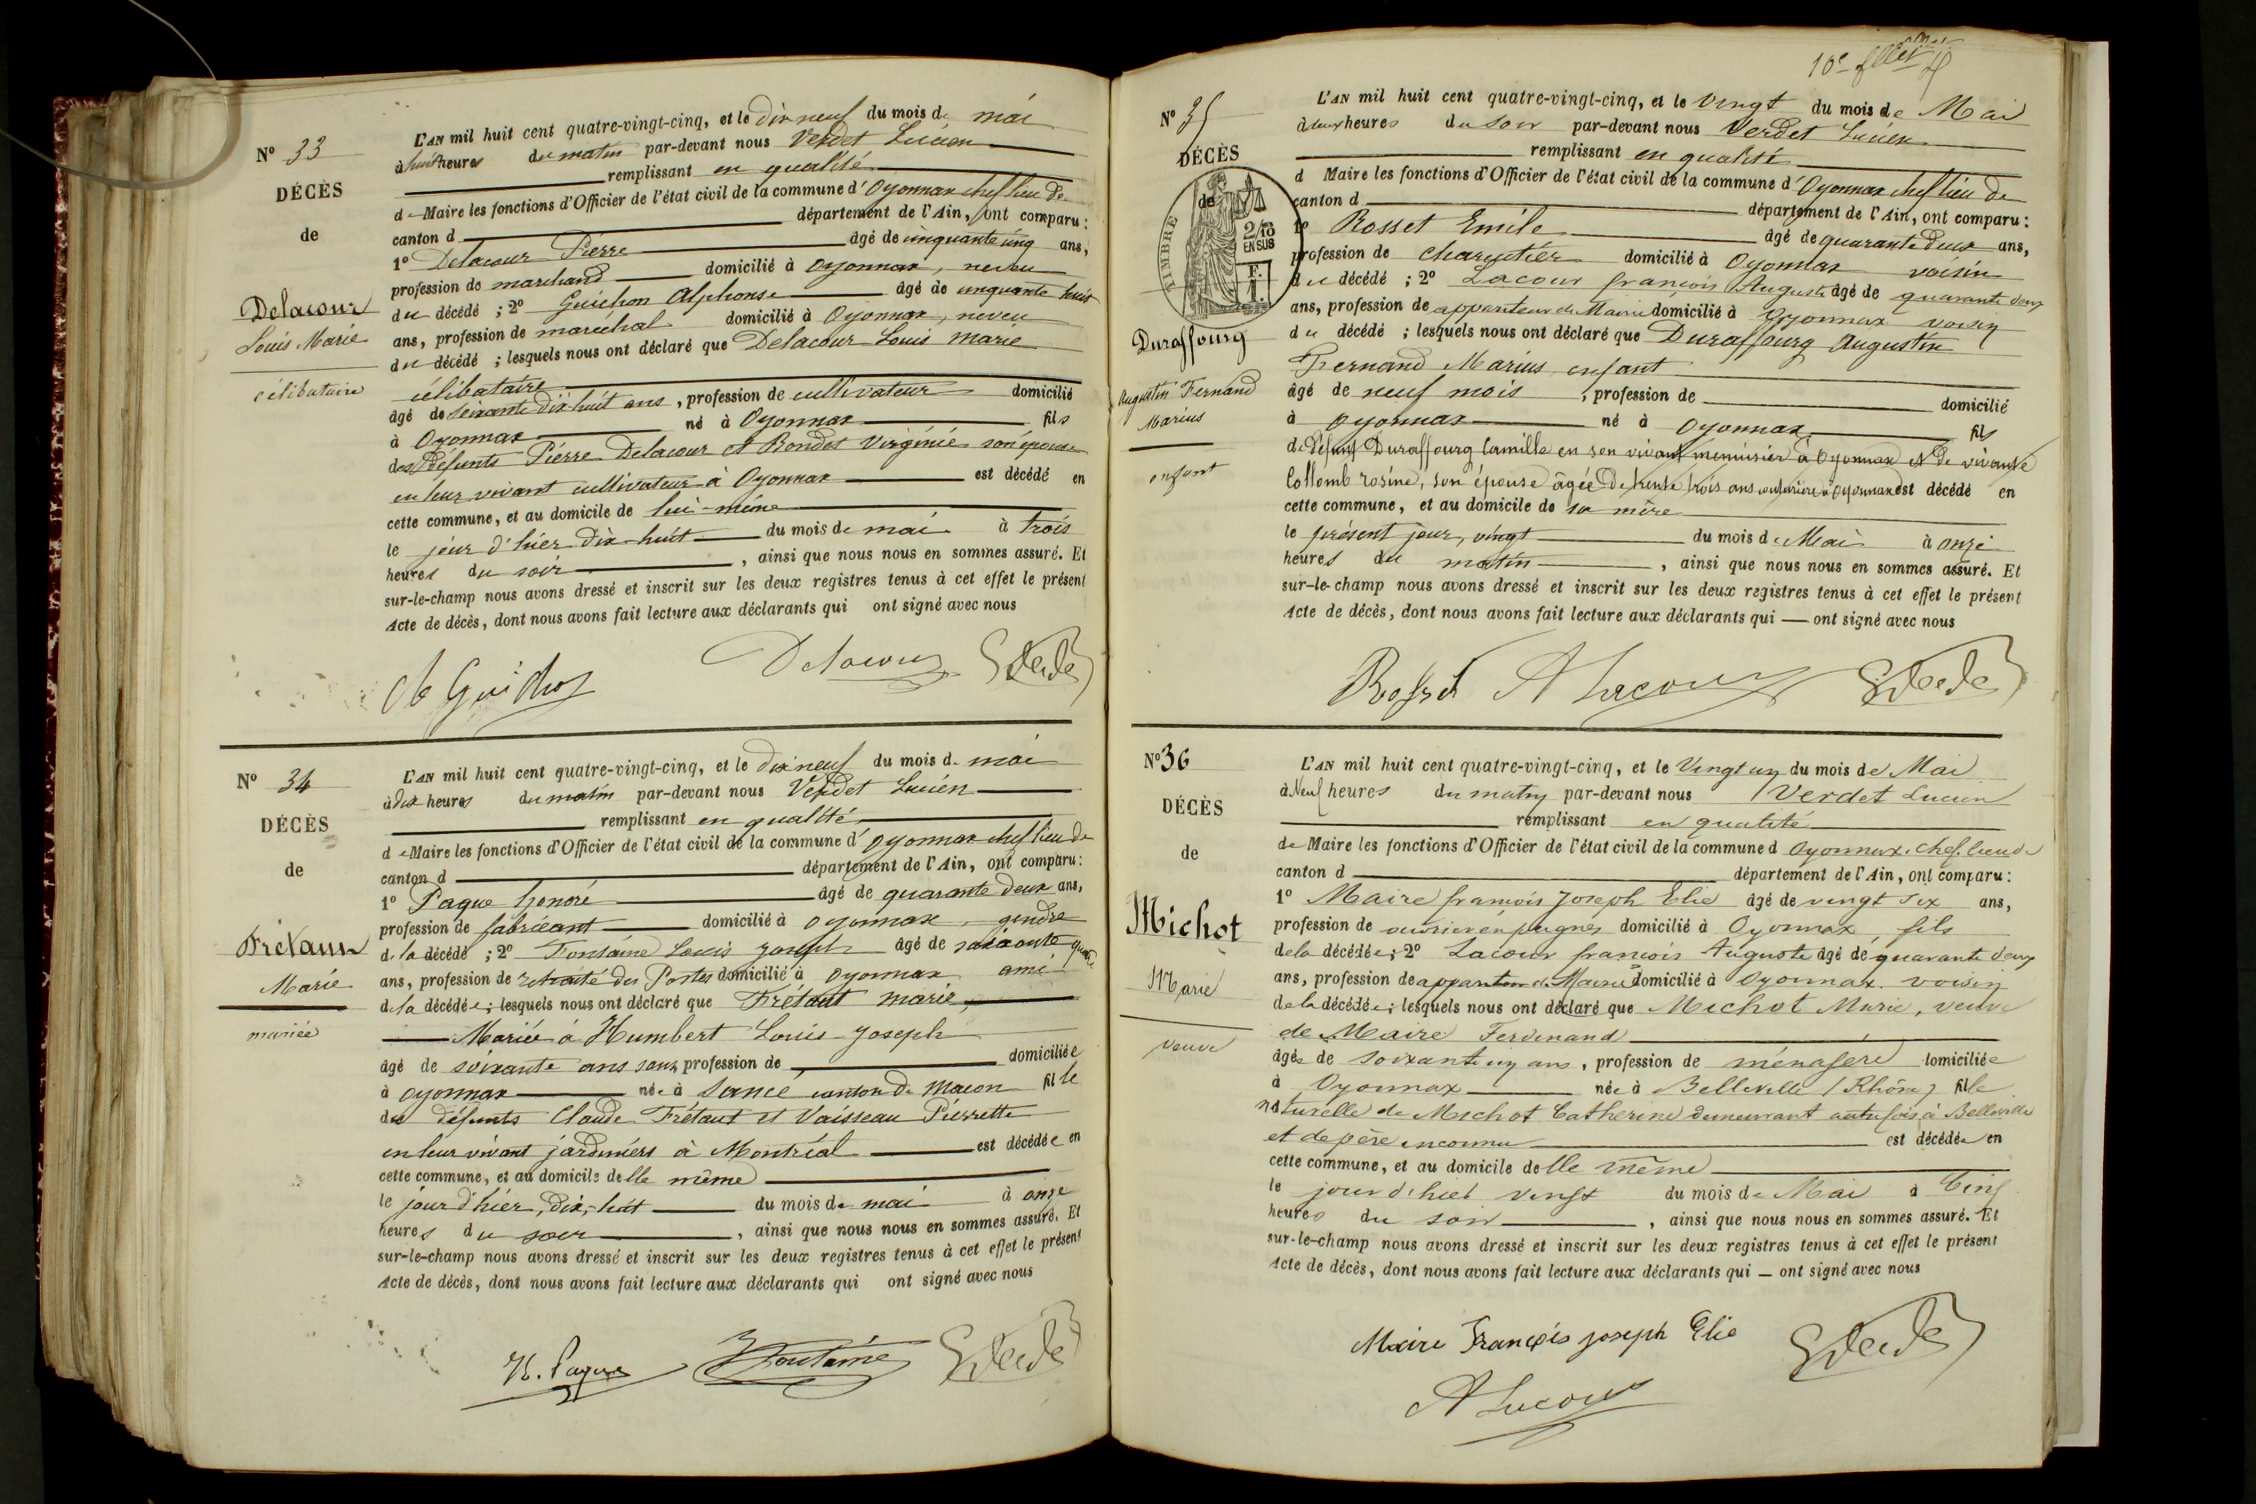 N° 33
DÉCÈS
de
Delacour
Louis Marie
célibataire
L'AN mil huit cent quatre-vingt-cinq, et le dix neuf du mois de mai
à huit heures du matin par-devant nous Verdet Lucien
remplissant en qualité
de Maire les fonctions d'Officier de l'état civil de la commune d'Oyonnax chef lieu de
canton d département de l'Ain, ont comparu :
1° Delacour Pierre âgé de cinquante cinq ans,
profession de marchand domicilié à Oyonnax, neveu
du décédé ; 2° Guichon Alphonse âgé de cinquante huit
ans, profession de maréchal domicilié à Oyonnax, neveu
du décédé ; lesquels nous ont déclaré que Delacour Louis Marie
célibataire
âgé de soixante dix huit ans, profession de cultivateur domicilié
à Oyonnax né à Oyonnax fils
des défunts Pierre Delacour et Bondet Virginie son épouse
en leur vivant cultivateur à Oyonnax est décédé en
cette commune, et au domicile de lui-même
le jour d'hier dix-huit du mois de mai à trois
heures du soir, ainsi que nous nous en sommes assuré. Et
sur-le-champ nous avons dressé et inscrit sur les deux registres tenus à cet effet le présent
Acte de décès, dont nous avons fait lecture aux déclarants qui ont signé avec nous
Guichon Delacour Verdet
N° 34
DÉCÈS
de
Frétaut
Marie
mariée
L'AN mil huit cent quatre-vingt-cinq, et le dix neuf du mois d. mai
à dix heures du matin par-devant nous Verdet Lucien
remplissant en qualité
de Maire les fonctions d'Officier de l'état civil de la commune d'Oyonnax chef lieu de
canton d département de l'Ain, ont comparu :
1° Paque Honoré âgé de quarante deux ans,
profession de fabricant domicilié à Oyonnax, gendre
de la décédé ; 2° Fontaine Louis Joseph âgé de soixante quatre
ans, profession de retraité des Postes domicilié à Oyonnax ami
de la décédée ; lesquels nous ont déclaré que Frétaut Marie,
Mariée à Humbert Louis Joseph
âgé de soixante ans sans profession de domiciliée
à Oyonnax née à Sancé canton de Macon fille
des défunts Claude Frétaut et Vaisseau Pierrette
en leur vivant jardiniers à Montréal est décédée en
cette commune, et au domicile delle même
le jour d'hier, dix-huit du mois de mai à onze
heures du soir, ainsi que nous nous en sommes assuré. Et
sur-le-champ nous avons dressé et inscrit sur les deux registres tenus à cet effet le présent
Acte de décès, dont nous avons fait lecture aux déclarants qui ont signé avec nous
H. Paque Fontaine Verdet
10e
N° 35
DÉCÈS
de
TIMBRE
2/10
EN SUS
F.
1.
Duraffourg
Augustin Fernand
Marius
enfant
L'AN mil huit cent quatre-vingt-cinq, et le Vingt du mois de Mai
à deux heures du soir par-devant nous Verdet Lucien
remplissant en qualité
d Maire les fonctions d'Officier de l'état civil de la commune d'Oyonnax chef lieu de
canton d département de l'Ain, ont comparu :
1° Rosset Emile âgé de quarante deux ans,
profession de charcutier domicilié à Oyonnax voisin
du décédé ; 2° Lacour françois Auguste âgé de quarante deux
ans, profession de appariteur de Mairie domicilié à Oyonnax voisin
du décédé ; lesquels nous ont déclaré que Duraffourg Augustin
Fernand Marius enfant
âgé de neuf mois, profession de domicilié
à Oyonnax né à Oyonnax fils
de défunt Duraffourg Camille en son vivant menuisier à Oyonnax et de vivante
Collomb rosine, son épouse âgée de trente trois ans couturière à Oyonnax est décédé en
cette commune, et au domicile de sa mère
le présent jour, vingt du mois de Mai à onze
heures du matin, ainsi que nous nous en sommes assuré. Et
sur-le-champ nous avons dressé et inscrit sur les deux registres tenus à cet effet le présent
Acte de décès, dont nous avons fait lecture aux déclarants qui ont signé avec nous
Rosset A Lacour Verdet
N° 36
DÉCÈS
de
Michot
Marie
veuve
L'AN mil huit cent quatre-vingt-cinq, et le Vingt un du mois de Mai
à Neuf heures du matin par-devant nous Verdet Lucien
remplissant en qualité
de Maire les fonctions d'Officier de l'état civil de la commune d Oyonnax. chef. lieu de
canton d département de l'Ain, ont comparu :
1° Maire françois Joseph Elie âgé de vingt six ans,
profession de ouvrier en peignes domicilié à Oyonnax, fils
de la décédée ; 2° Lacour françois Auguste âgé de quarante deux
ans, profession de appariteur de Mairie domicilié à Oyonnax. voisin
de la décédée ; lesquels nous ont déclaré que Michot Marie, veuve
de Maire Ferdinand
âgée de soixante un ans, profession de ménagère domiciliée
à Oyonnax née à Belleville (Rhône) fille
naturelle de Michot Catherine demeurant autrefois à Belleville
et de père inconnu est décédée en
cette commune, et au domicile delle même
le jour d'hier vingt du mois de Mai à Cinq
heures du soir, ainsi que nous nous en sommes assuré. Et
sur-le-champ nous avons dressé et inscrit sur les deux registres tenus à cet effet le présent
Acte de décès, dont nous avons fait lecture aux déclarants qui ont signé avec nous
Maire François joseph Elie Verdet
A Lacour